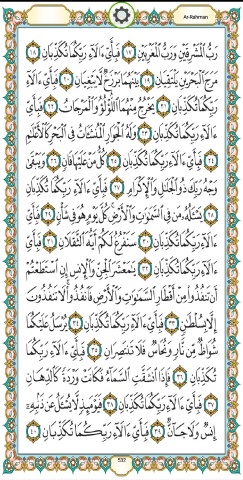 Ar-Rahman
رَبُّ الْمَشْرِقَيْنِ وَرَبُّ الْمَغْرِبَيْنِ ١٧ فَبِأَيِّ آلَاءِ رَبِّكُمَا تُكَذِّبَانِ ١٨
مَرَجَ الْبَحْرَيْنِ يَلْتَقِيَانِ ١٩ بَيْنَهُمَا بَرْزَخٌ لَّا يَبْغِيَانِ ٢٠ فَبِأَيِّ آلَاءِ
رَبِّكُمَا تُكَذِّبَانِ ٢١ يَخْرُجُ مِنْهُمَا اللُّؤْلُؤُ وَالْمَرْجَانُ ٢٢ فَبِأَيِّ
آلَاءِ رَبِّكُمَا تُكَذِّبَانِ ٢٣ وَلَهُ الْجَوَارِ الْمُنشَآتُ فِي الْبَحْرِ كَالْأَعْلَامِ
٢٤ فَبِأَيِّ آلَاءِ رَبِّكُمَا تُكَذِّبَانِ ٢٥ كُلُّ مَنْ عَلَيْهَا فَانٍ ٢٦ وَيَبْقَىٰ
وَجْهُ رَبِّكَ ذُو الْجَلَالِ وَالْإِكْرَامِ ٢٧ فَبِأَيِّ آلَاءِ رَبِّكُمَا تُكَذِّبَانِ
٢٨ يَسْأَلُهُ مَن فِي السَّمَاوَاتِ وَالْأَرْضِ كُلَّ يَوْمٍ هُوَ فِي شَأْنٍ ٢٩ فَبِأَيِّ
آلَاءِ رَبِّكُمَا تُكَذِّبَانِ ٣٠ سَنَفْرُغُ لَكُمْ أَيُّهَ الثَّقَلَانِ ٣١ فَبِأَيِّ
آلَاءِ رَبِّكُمَا تُكَذِّبَانِ ٣٢ يَا مَعْشَرَ الْجِنِّ وَالْإِنسِ إِنِ اسْتَطَعْتُمْ
أَن تَنفُذُوا مِنْ أَقْطَارِ السَّمَاوَاتِ وَالْأَرْضِ فَانفُذُوا لَا تَنفُذُونَ
إِلَّا بِسُلْطَانٍ ٣٣ فَبِأَيِّ آلَاءِ رَبِّكُمَا تُكَذِّبَانِ ٣٤ يُرْسَلُ عَلَيْكُمَا
شُوَاظٌ مِّن نَّارٍ وَنُحَاسٌ فَلَا تَنتَصِرَانِ ٣٥ فَبِأَيِّ آلَاءِ رَبِّكُمَا
تُكَذِّبَانِ ٣٦ فَإِذَا انشَقَّتِ السَّمَاءُ فَكَانَتْ وَرْدَةً كَالدِّهَانِ
٣٧ فَبِأَيِّ آلَاءِ رَبِّكُمَا تُكَذِّبَانِ ٣٨ فَيَوْمَئِذٍ لَّا يُسْأَلُ عَن ذَنبِهِ
إِنسٌ وَلَا جَانٌّ ٣٩ فَبِأَيِّ آلَاءِ رَبِّكُمَا تُكَذِّبَانِ ٤٠
532